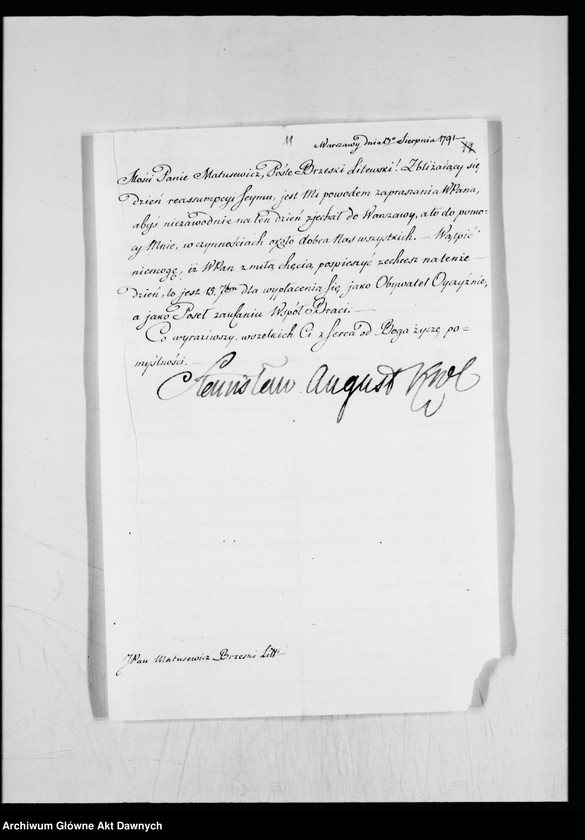 z Warszawy dnia 13º Sierpnia 1791 —
Mości Panie Matusewicz, Pośle Brzeski Litewski! Zbliżaiący się
dzień reassumpcyi Seymu, jest Mi powodem zapraszania WPana,
abyś niezawodnie na ten dzień zjechał do Warszawy, a to do pomo-
cy Mnie, w czynnościach około dobra Nas wszystkich. — Wątpić
niemogę, iż WPan z miłą chęcią, pospieszyć zechcesz na tenże
dzień, to jest 15. 7bra dla wypłacenia się jako Obywatel Oyczyźnie,
a jako Poseł zaufaniu Współ Braci. —
Co wyraziwszy, wszelkich Ci z serca od Boga życzę po-
myślności. —
Stanisław August Król
JPan Matusewicz Brzeski Litt:
Archiwum Główne Akt Dawnych